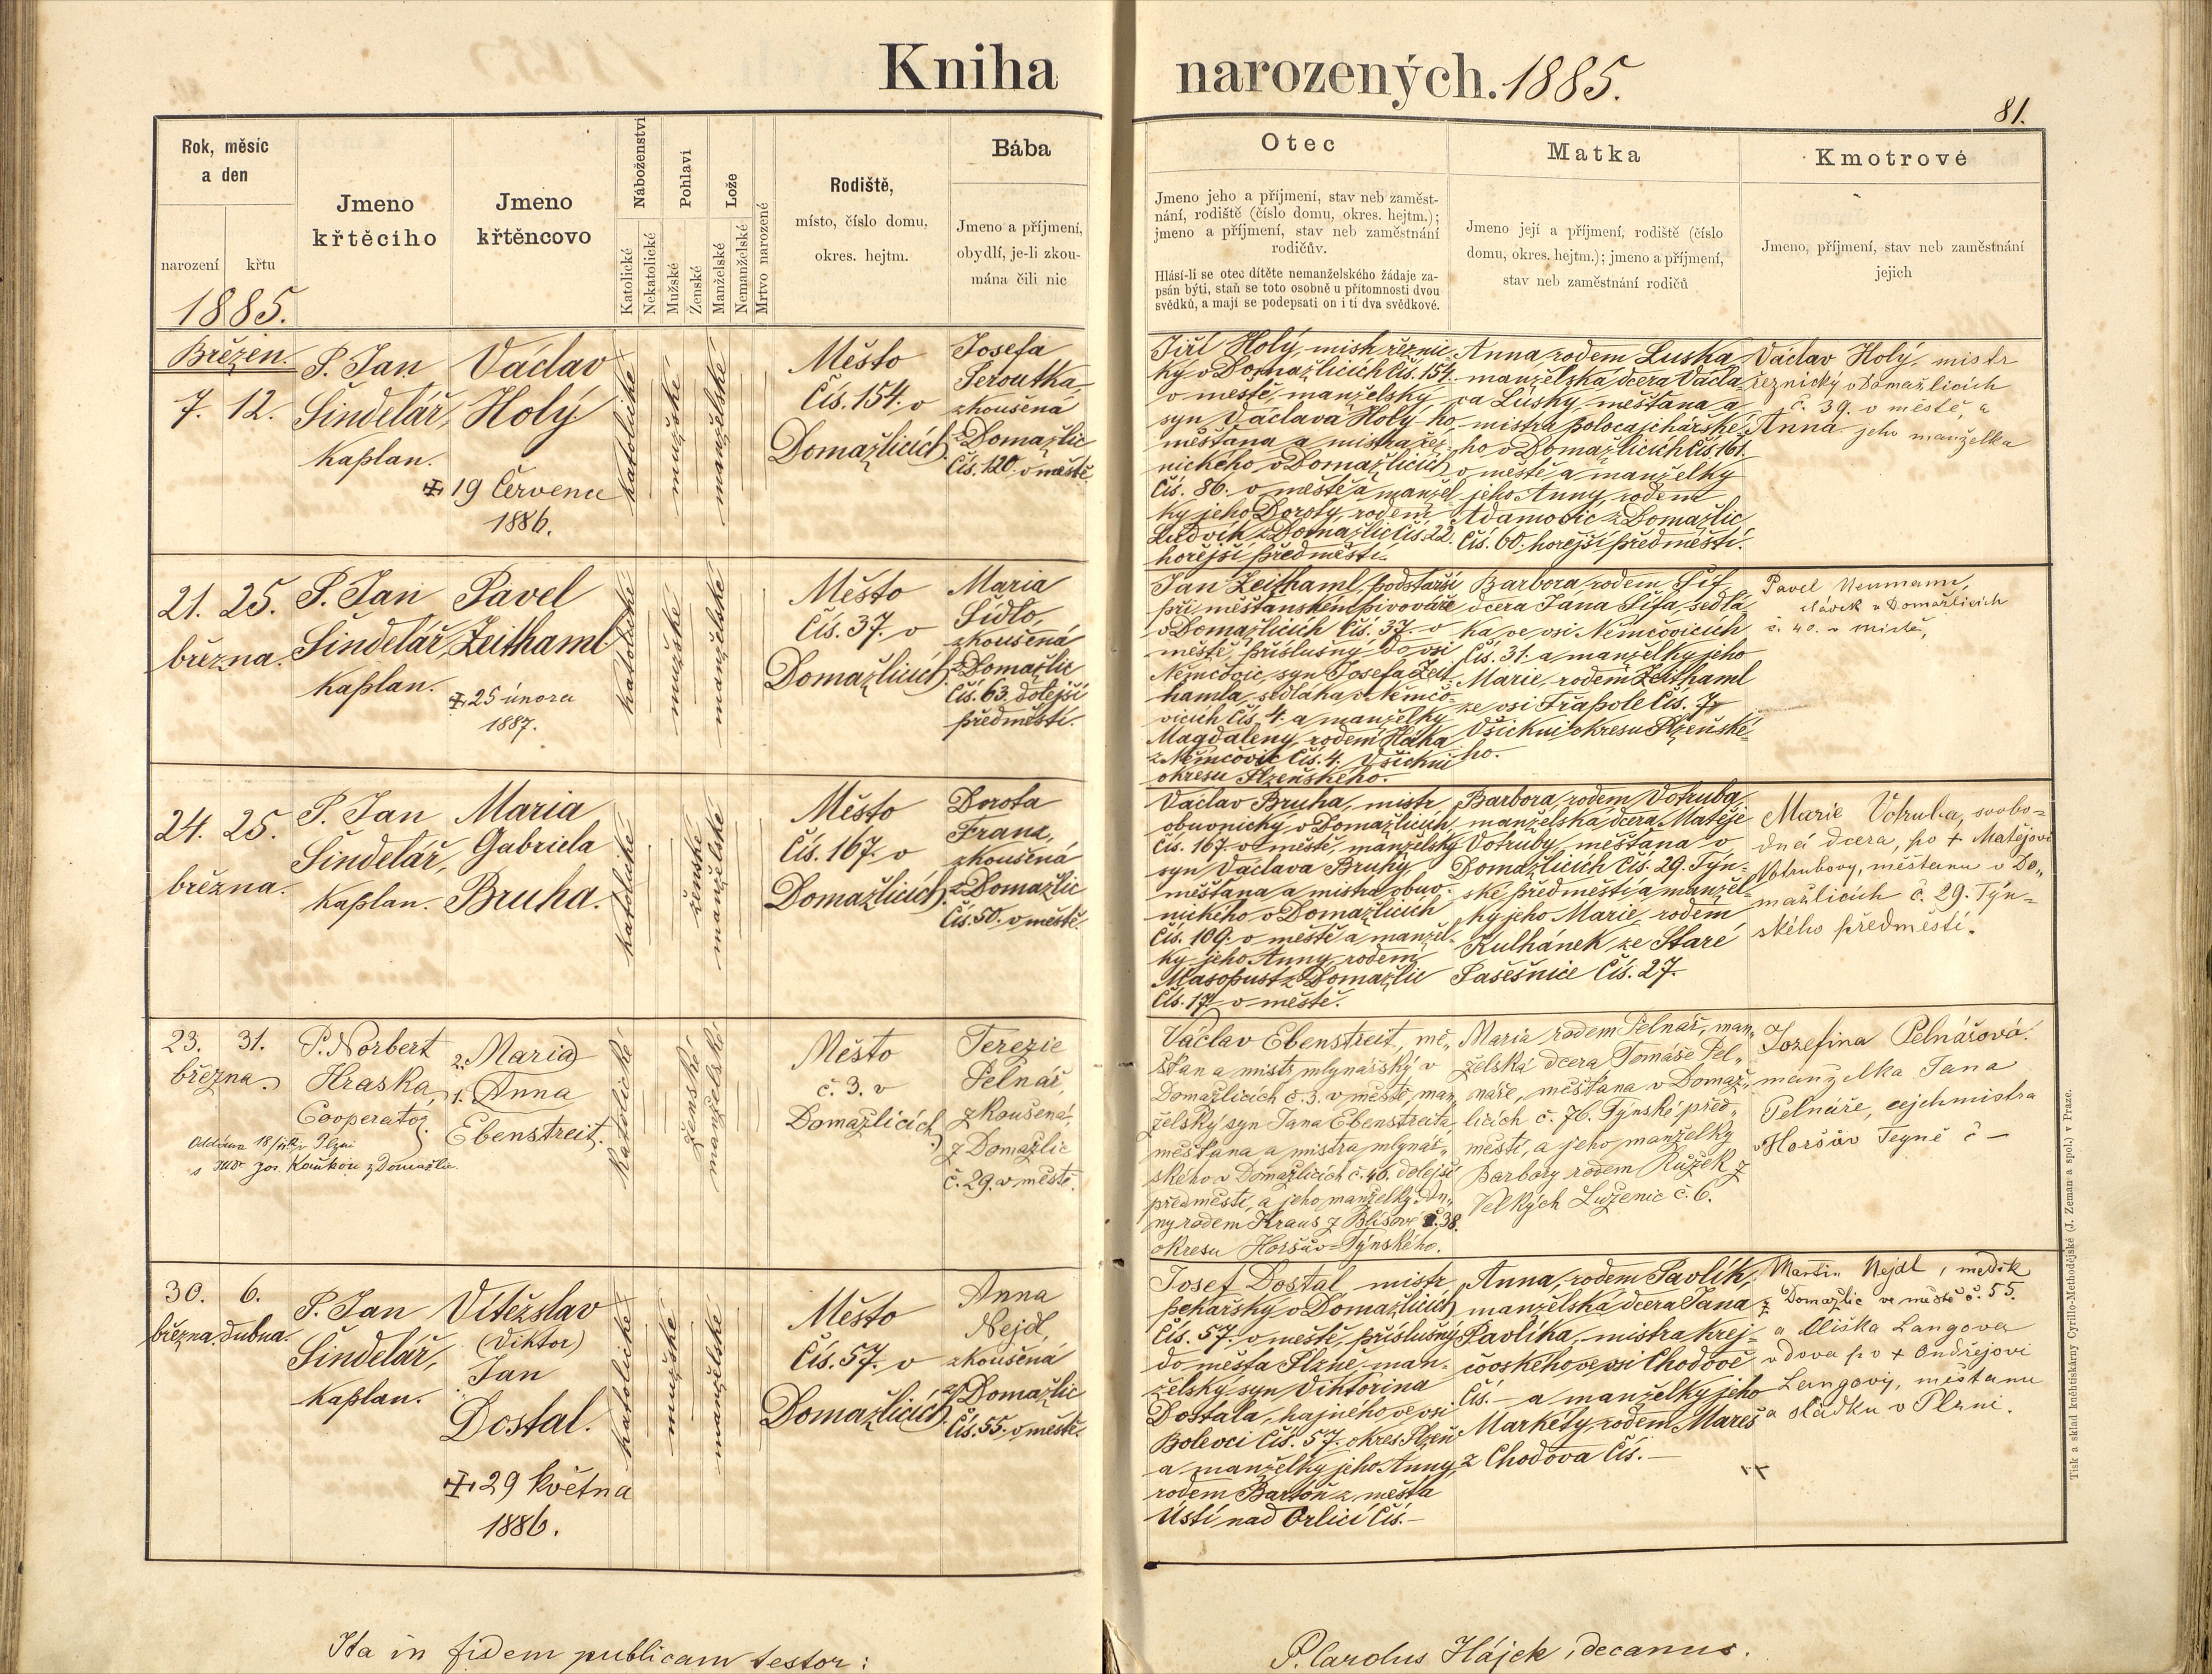 Kniha narozených. 1885.
81.
Rok, měsíc
a den
narození křtu
1885.
Jmeno
křtěcího
Jmeno
křtěncovo
Náboženství
Katolické
Nekatolické
Pohlaví
Mužské
Ženské
Lože
Manželské
Nemanželské
Mrtvo narozené
Rodiště,
místo, číslo domu,
okres. hejtm.
Bába
Jmeno a příjmení,
obydlí, je-li zkou-
mána čili nic
Otec
Jmeno jeho a příjmení, stav neb zaměst-
nání, rodiště (číslo domu, okres. hejtm.);
jmeno a příjmení, stav neb zaměstnání
rodičův.
Hlásí-li se otec dítěte nemanželského žádaje za-
psán býti, staň se toto osobně u přítomnosti dvou
svědků, a mají se podepsati on i ti dva svědkové.
Matka
Jmeno její a příjmení, rodiště (číslo
domu, okres. hejtm.); jmeno a příjmení,
stav neb zaměstnání rodičů
Kmotrové
Jmeno, příjmení, stav neb zaměstnání
jejich
Březen.
7. 12.
P. Jan
Šindelář,
kaplan.
Václav
Holý
19 Červena
1886.
katolické
mužské
manželské
Město
Čís. 154. v
Domažlicích
Josefa
Seroutka
zkoušená
z Domažlic
Čís. 120. v městě.
Jiří Holý, mistr řeznic-
ký v Domažlicích Čís. 154.
v městě, manželský
syn Václava Holý-ho
měšťana a mistra řez-
nického v Domažlicích
Čís. 86. v městě a manžel-
ky jeho Doroty, rodem
Ludvík z Domažlic Čís. 22.
hořejší předměstí.
Anna rodem Luska
manželská dcera Václa-
va Lusky, měšťana a
mistra polocajchářské-
ho v Domažlicích Čís. 161.
v městě a manželky
jeho Anny, rodem
Adamovic z Domažlic
Čís. 60. hořejší předměstí.
Václav Holý, mistr
řeznický v Domažlicích
č. 39. v městě, a
Anna jeho manželka
21. 25.
března.
P. Jan
Šindelář,
kaplan.
Pavel
Zeithaml
25 února
1887.
katolické
mužské
manželské
Město
Čís. 37. v
Domažlicích
Maria
Sídlo,
zkoušená
z Domažlic
Čís. 63. dolejší
předměstí.
Jan Zeithaml, podstarší
při měšťanském pivováře
v Domažlicích Čís. 37. v
městě, příslušný do vsi
Němčovic, syn Josefa Zeit-
hamla, sedláka v Němčo-
vicích Čís. 4. a manželky
Magdaleny, rodem Hlaka
z Němčovic Čís. 4. Všichni
okresu Plzeňského.
Barbora, rodem Šíf
dcera Jána Šífa, sedlá-
ka ve vsi Němčovicích
Čís. 31. a manželky jeho
Marie, rodem Zeithaml
ze vsi Třapole Čís. 7.
Všickni okresu Plzeňské-
ho.
Pavel Neumann,
sládek v Domažlicích
č. 40. v městě,
24. 25.
března.
P. Jan
Šindelář,
kaplan.
Maria
Gabriela
Bruha.
katolické
ženské
manželské
Město
Čís. 167. v
Domažlicích
Dorota
Franz,
zkoušená
z Domažlic
Čís. 50. v městě.
Václav Bruha, mistr
obuvnický v Domažlicích
Čís. 167. v městě, manželský
syn Václava Bruhy,
měšťana a mistra obuv-
nického v Domažlicích
Čís. 109. v městě a manžel-
ky jeho Anny, rodem
Masopust z Domažlic
Čís. 171 v městě.
Barbora, rodem Votruba,
manželská dcera Matěje
Votruby, měšťana v
Domažlicích Čís. 29. Týn-
ské předměstí a manžel-
ky jeho Marie, rodem
Kulhánek ze Staré
Pasešnice Čís. 27.
Marie Votruba, svobo-
dná dcera, po + Matějovi
Votrubovy, měšťanu v Do-
mažlicích č. 29. Týn-
ského předměstí.
23. 31.
března.
P. Norbert
Hraska,
Cooperator.
Oddána v Plzni
s JUDr Jos. z Domažlic
2. Maria
1. Anna
Ebenstreit.
Katolické
ženské
manželské
Město
č. 3. v
Domažlicích
Terezie
Pelnář,
zkoušená,
z Domažlic
č. 29. v městě.
Václav Ebenstreit, mě-
šťan a mistr mlynářský v
Domažlicích č. 3. v městě, man-
želský syn Jana Ebenstreita
měšťana a mistra mlynář-
ského v Domažlicích č. 46. dolejší
předměstí, a jeho manželky An-
ny rodem Kraus z Blisové č. 38.
okresu Horšův-Týnského.
Maria rodem Pelnář, man-
želská dcera Tomáše Pel-
náře, měšťana v Domaž-
licích č. 76. Týnské před-
městí, a jeho manželky
Barbory rodem Růžek z
Velkých Luženic č. 6.
Jozefina Pelnářová
manželka Jana
Pelnáře, cejchmistra
v Horšův Teyně č —
30. 6.
března. dubna.
P. Jan
Šindelář,
kaplan.
Vítězslav
(Viktor)
Jan
Dostal.
29 Května
1886.
katolické
mužské
manželské
Město
Čís. 57. v
Domažlicích
Anna
Nejdl,
zkoušená
z Domažlic
Čís. 55. v městě.
Josef Dostal, mistr
pekařský v Domažlicích
Čís. 57. v městě, příslušný
do města Plzně, man-
želský syn Viktorina
Dostala, hajného ve vsi
Bolevci Čís. 57. okres Plzeň
a manželky jeho Anny,
rodem Bartoň z města
Ústí nad Orlicí Čís. —
Anna, rodem Pavlík,
manželská dcera Jana
Pavlíka, mistra krej-
čovského ve vsi Chodově
Čís. — a manželky jeho
Markéty, rodem Mareš
z Chodova Čís. —
Martin Nejdl, medik
z Domažlic ve městě č. 55.
a Ališka Langova
vdova po + Ondřejovi
Langovi, měšťanu
a sládku v Plzni.
Tisk a sklad knihtiskárny Cyrillo-Methodějské (J. Zeman a spol.) v Praze.
Ita in fidem publicam testor:
P. Carolus Hájek, decanus.